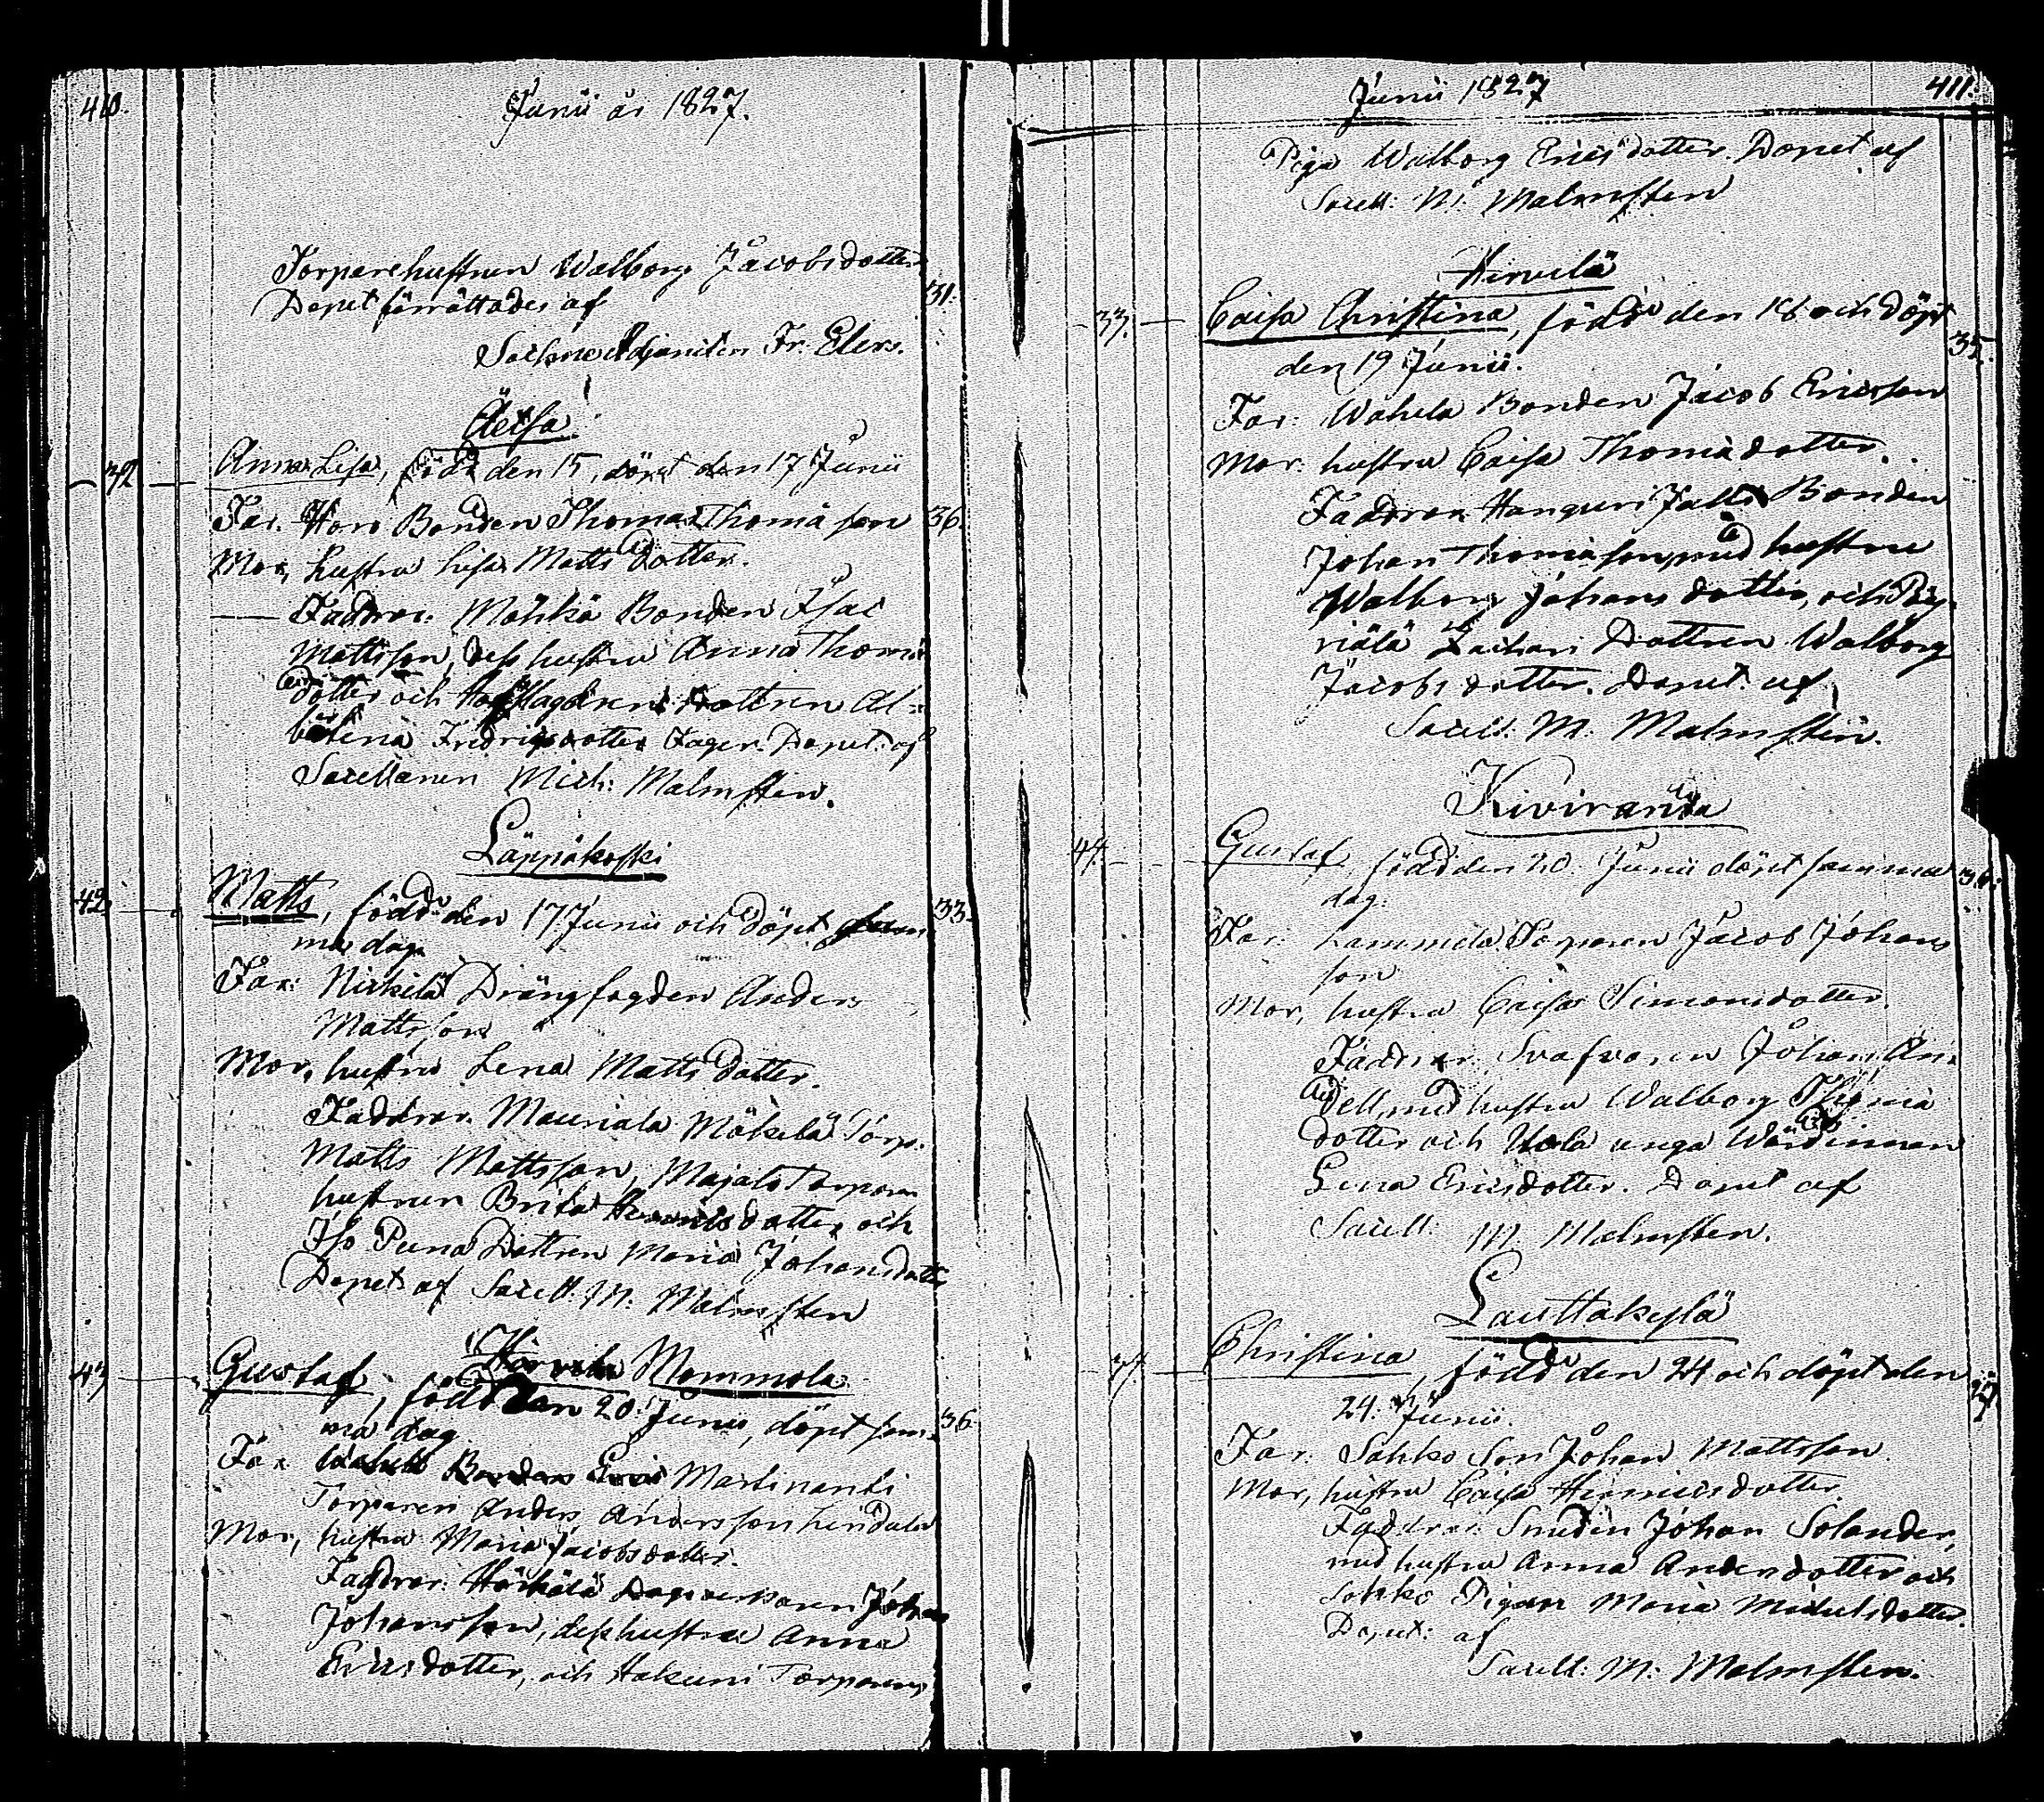 410.
Junii år 1827.
Torparehustrun Walborg Jacobsdotter
31.
Dopet förrättades af
Sockne Adjuncten Fr: Elers.
32
Anna Lisa, född den 15, döpt den 17 Junii
Far. Horo Bonden Thomas Thomä son 36.
Mor, hustru Lisa Matts dotter.
Faddrar: Mahka Bonden Isac
Mattsson, dess hustru Anna Thomä
dotter och Dottren Al=
bertina Fredricsdotter Fager. Dopet af
Sacellanen Mich: Malmsten.
Läppäkoski
42 Matts, född den 17 Junii och döpt sam= 33.
ma dag.
Far: Nickilä Drängfogden Anders
Mattsson
Mor, hustru Lena Matts dotter.
Faddrar. Mauriala Mäkelä Torp.
Matts Mattsson, Majala Torpare
hustrun Brita dotter och
Iso Puna Dottren Maria Johansdotter
Dopet af Sacell. M: Malmsten
Mommola
43 Gustaf, född den 20. Junii, döpt sam= 36
ma dag.
Far Martinanti
Torparen Anders Andersson Lindala
Mor, hustru Maria Jacobsdotter.
Faddrar. Härkälä Dagsverkaren Johan
Johansson, dess hustru Anna
Ericsdotter, och Hakuni Torparens
Junii 1827
411.
Piga Walborg Ericsdotter. Dopet af
Sacell: M: Malmsten
33. Caisa Christina, född den 18 och döpt
35.
den 19 Junii.
Far: Wahela Bonden Jacob Ericsson
Mor: hustru Caisa Thomä dotter.
Faddrar Hanguri Bonden
Johan Thomä son, med hustru
Walborg Johans dotter, och Pöy=
riälä Zachari Dottren Walborg
Jacobs dotter. Dopet af
Sacell. M: Malmsten.
Kiviranda
44. Gustaf, född den 20. Junii döpt samma 36.
dag.
Far: Lammela Torparen Jacob Johans
son
Mor, hustru Caisa Simonsdotter.
Faddrar: Svarfvaren Johan An=
dell, med hustru Walborg Thomä
dotter och unga Wärdinnan
Lena Ericsdotter. Dopet af
Sacell: M. Malmsten.
Lauttakylä
Christina, född den 24 och döpt den
24. Junii.
Far: Sohko Son Johan Mattsson.
Mor, hustru Caisa Henricsdotter.
Faddrar: Smeden Johan Solander,
med hustru Anna Andersdotter och
Sohko Pigan Maria Michelsdotter.
Dopet: af
Sacell: M: Malmsten.